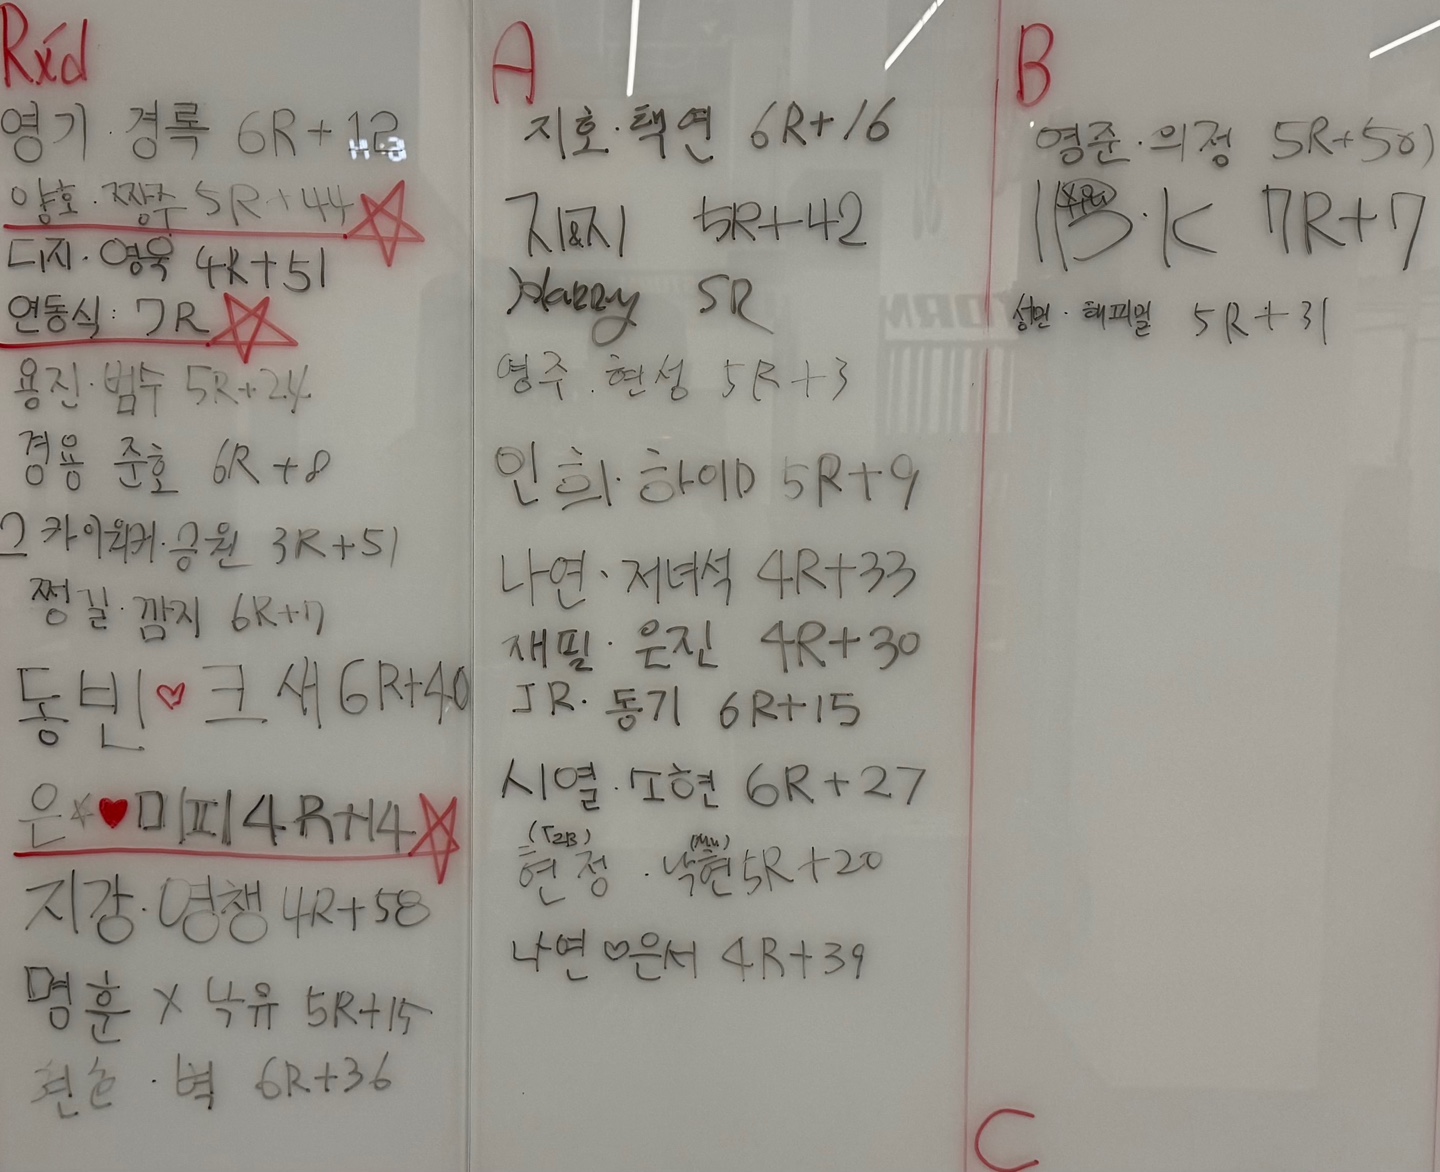 Rx'd
영기·경록 6R+12
양호·짱주 5R+44
디지·영욱 4R+51
연동식: 7R
용진·범수 5R+24
경용 준호 6R+8
그카이워커·승원 3R+51
쩡길·깜지 6R+17
동빈♡크새 6R+40
은☆♥미피 4R+14
지강·영챙 4R+58
명훈 X 낙유 5R+15
·벽 6R+36
A
지호·택연 6R+16
지&지 5R+42
Harry 5R
영주·현성 5R+3
인희·하이D 5R+9
나연·저녁석 4R+33
재필·은진 4R+30
JR·동기 6R+15
시열·소현 6R+27
현정·낙현 5R+20
나연♡은서 4R+39
B
영준·의정
·K 7R+7
성민·해피밀 5R+31
C